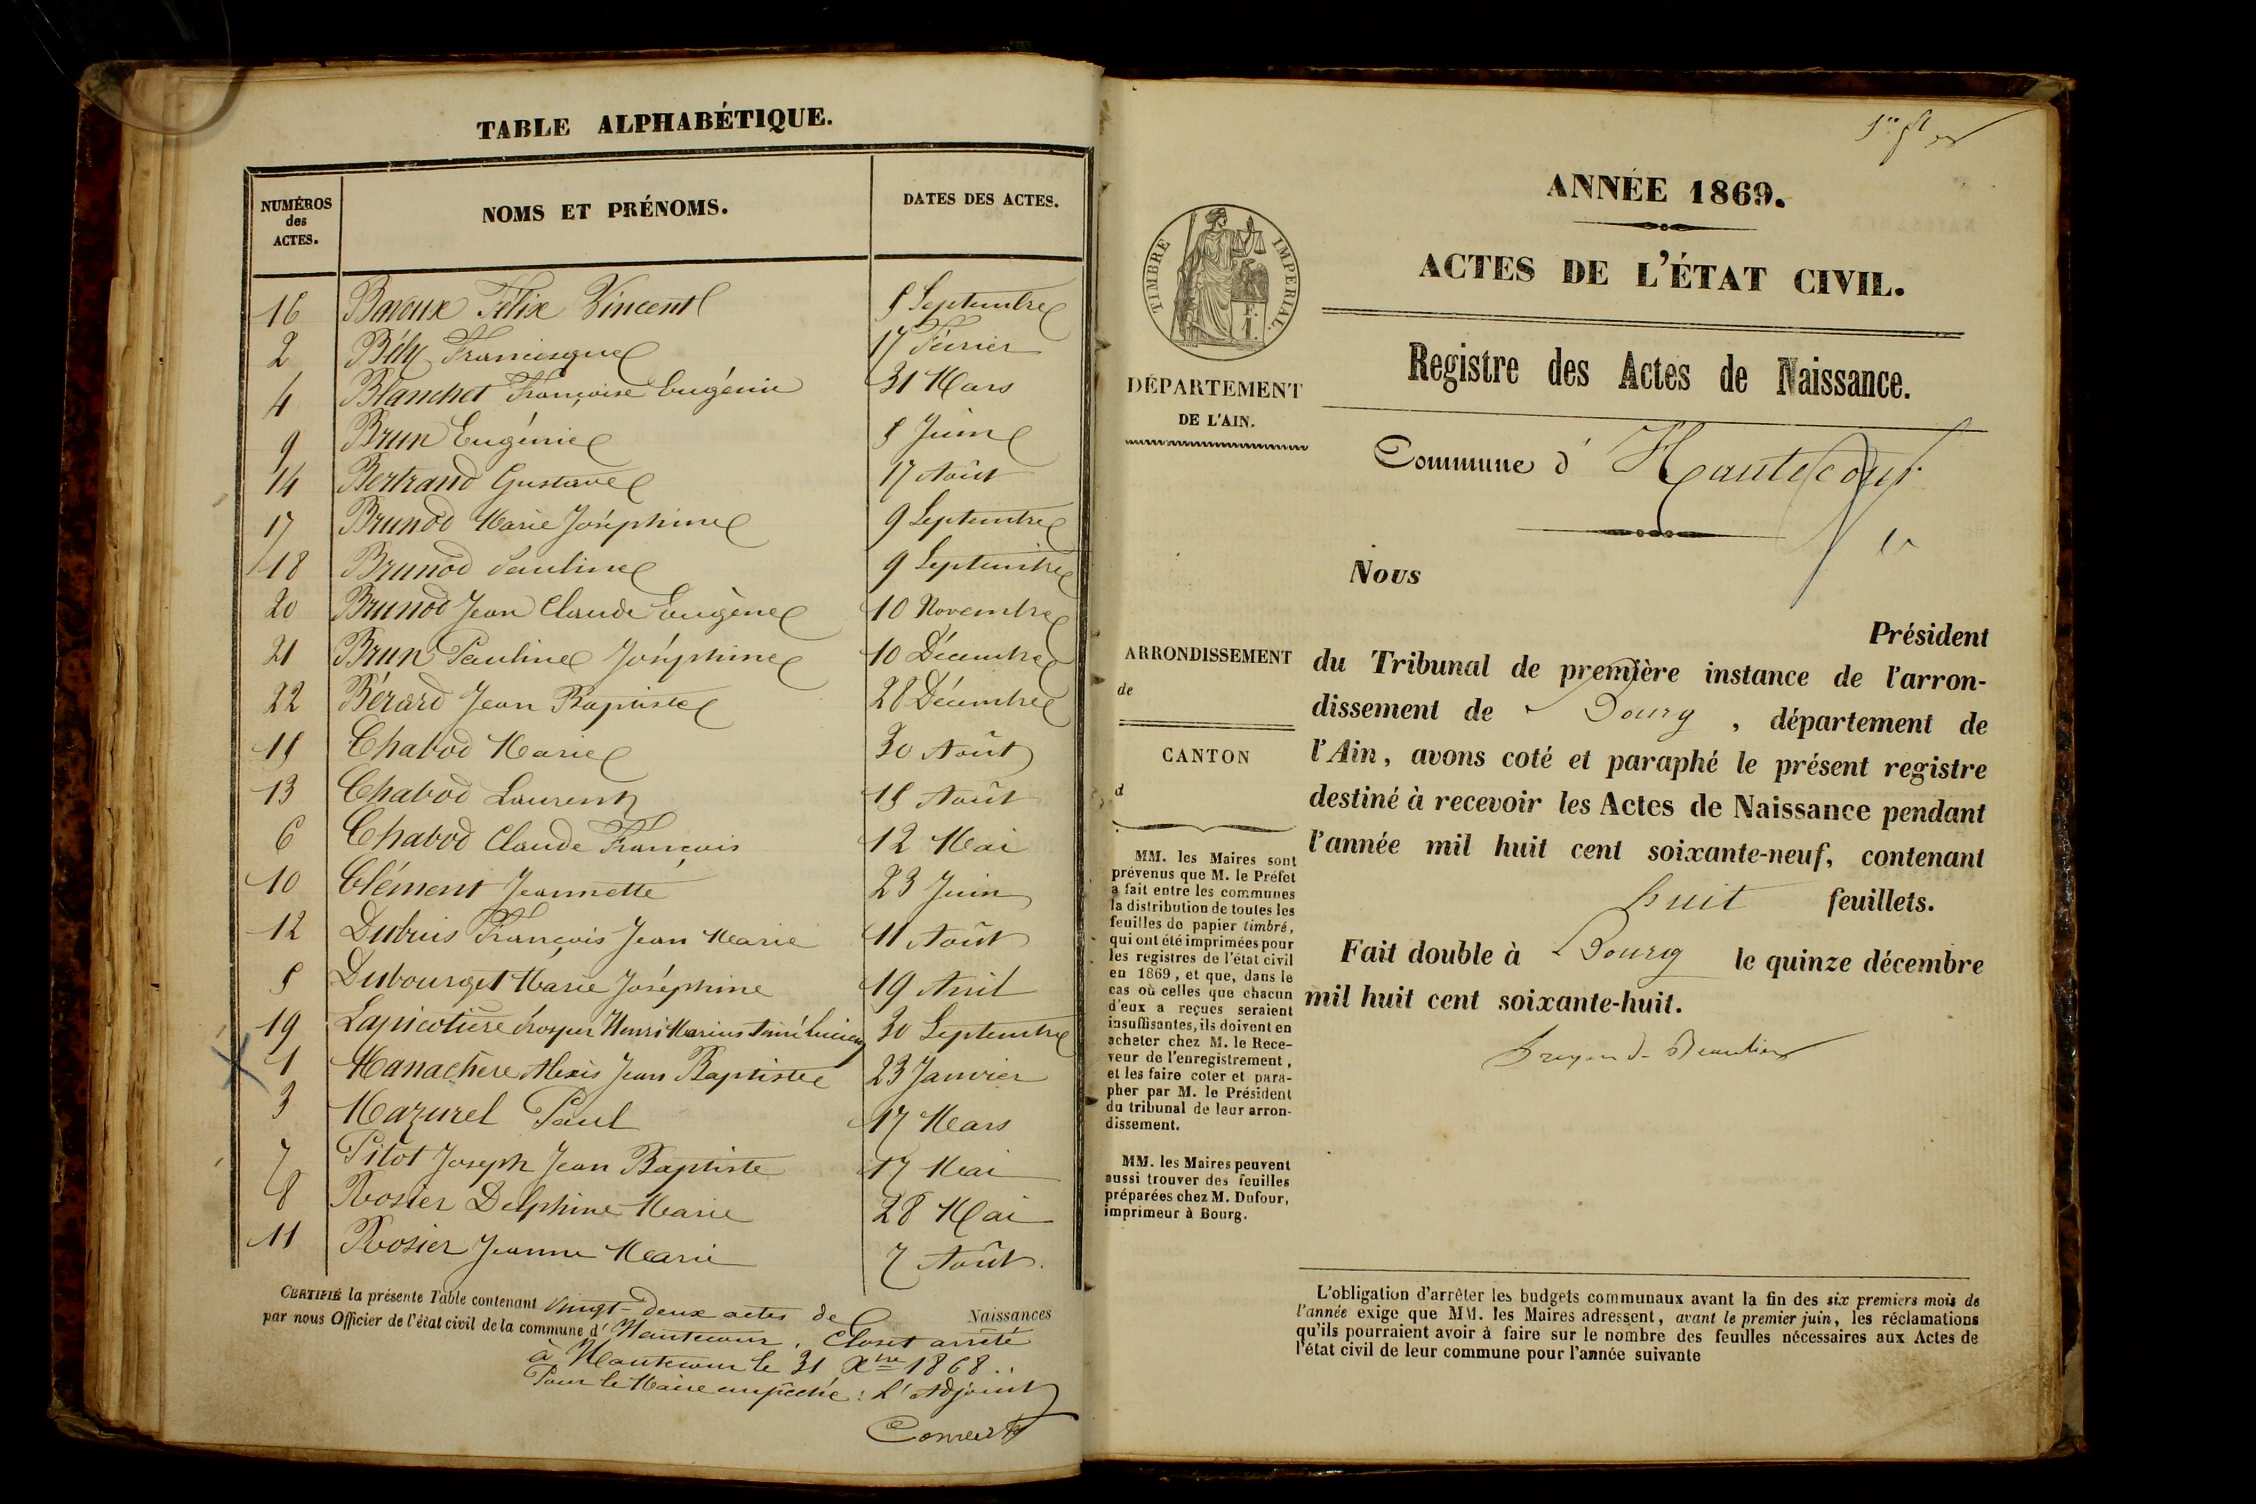 TABLE ALPHABÉTIQUE.
NUMÉROS
des
ACTES.
NOMS ET PRÉNOMS.
DATES DES ACTES.
16 Bavoux Félix Vincent 5 Septembre
2 Bély Francisque 17 Février
4 Blanchet Françoise Eugénie 31 Mars
9 Brun Eugénie 5 Juin
14 Bertrand Gustave 17 Août
17 Brunod Marie Joséphine 9 Septembre
18 Brunod Pauline 9 Septembre
20 Brunod Jean Claude Eugène 10 Novembre
21 Brun Pauline Joséphine 10 Décembre
22 Bérard Jean Baptiste 28 Décembre
15 Chabod Marie 30 Août
13 Chabod Laurent 15 Août
6 Chabod Claude François 12 Mai
10 Clément Jeannette 23 Juin
12 Dubuis François Jean Marie 11 Août
5 Dubourget Marie Joséphine 19 Avril
19 Lapicotière Prosper Henri Marius Aimé Lucien 30 Septembre
1 Manachère Alexis Jean Baptiste 23 Janvier
3 Mazurel Paul 17 Mars
7 Pitot Joseph Jean Baptiste 17 Mai
8 Rosier Delphine Marie 28 Mai
11 Rosier Jeanne Marie 7 Août.
CERTIFIÉ la présente Table contenant vingt-deux actes de Naissances
par nous Officier de l'état civil de la commune d' Hautecour. Closet arrêté
à Hautecour le 31 Xbre 1868.
Pour le Maire empêché : L'Adjoint
1er ft
ANNÉE 1869.
ACTES DE L'ÉTAT CIVIL.
TIMBRE IMPERIAL.
1 F.
Registre des Actes de Naissance.
DÉPARTEMENT
DE L'AIN.
Commune d' Hautecour
Nous
Président
ARRONDISSEMENT
de
CANTON
d
du Tribunal de première instance de l'arron-
dissement de Bourg, département de
l'Ain, avons coté et paraphé le présent registre
destiné à recevoir les Actes de Naissance pendant
l'année mil huit cent soixante-neuf, contenant
huit feuillets.
Fait double à Bourg le quinze décembre
mil huit cent soixante-huit.
MM. les Maires sont
prévenus que M. le Préfet
a fait entre les communes
la distribution de toutes les
feuilles de papier timbré,
qui ont été imprimées pour
les registres de l'état civil
en 1869, et que, dans le
cas où celles que chacun
d'eux a reçues seraient
insuffisantes, ils doivent en
acheter chez M. le Rece-
veur de l'enregistrement,
et les faire coter et para-
pher par M. le Président
du tribunal de leur arron-
dissement.
MM. les Maires peuvent
aussi trouver des feuilles
préparées chez M. Dufour,
imprimeur à Bourg.
L'obligation d'arrêter les budgets communaux avant la fin des six premiers mois de
l'année exige que MM. les Maires adressent, avant le premier juin, les réclamations
qu'ils pourraient avoir à faire sur le nombre des feuilles nécessaires aux Actes de
l'état civil de leur commune pour l'année suivante